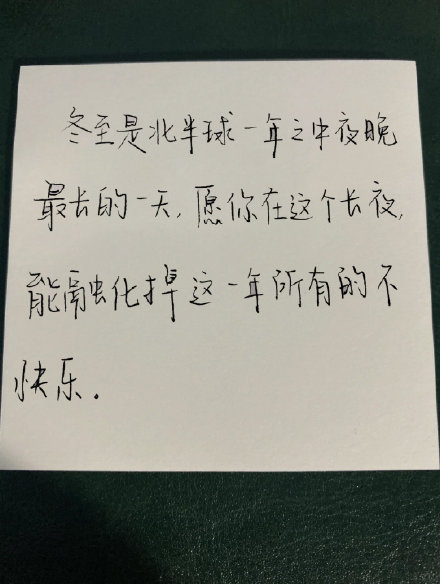 冬至是北半球一年之中夜晚
最长的一天,愿你在这个长夜,
能融化掉这一年所有的不
快乐.